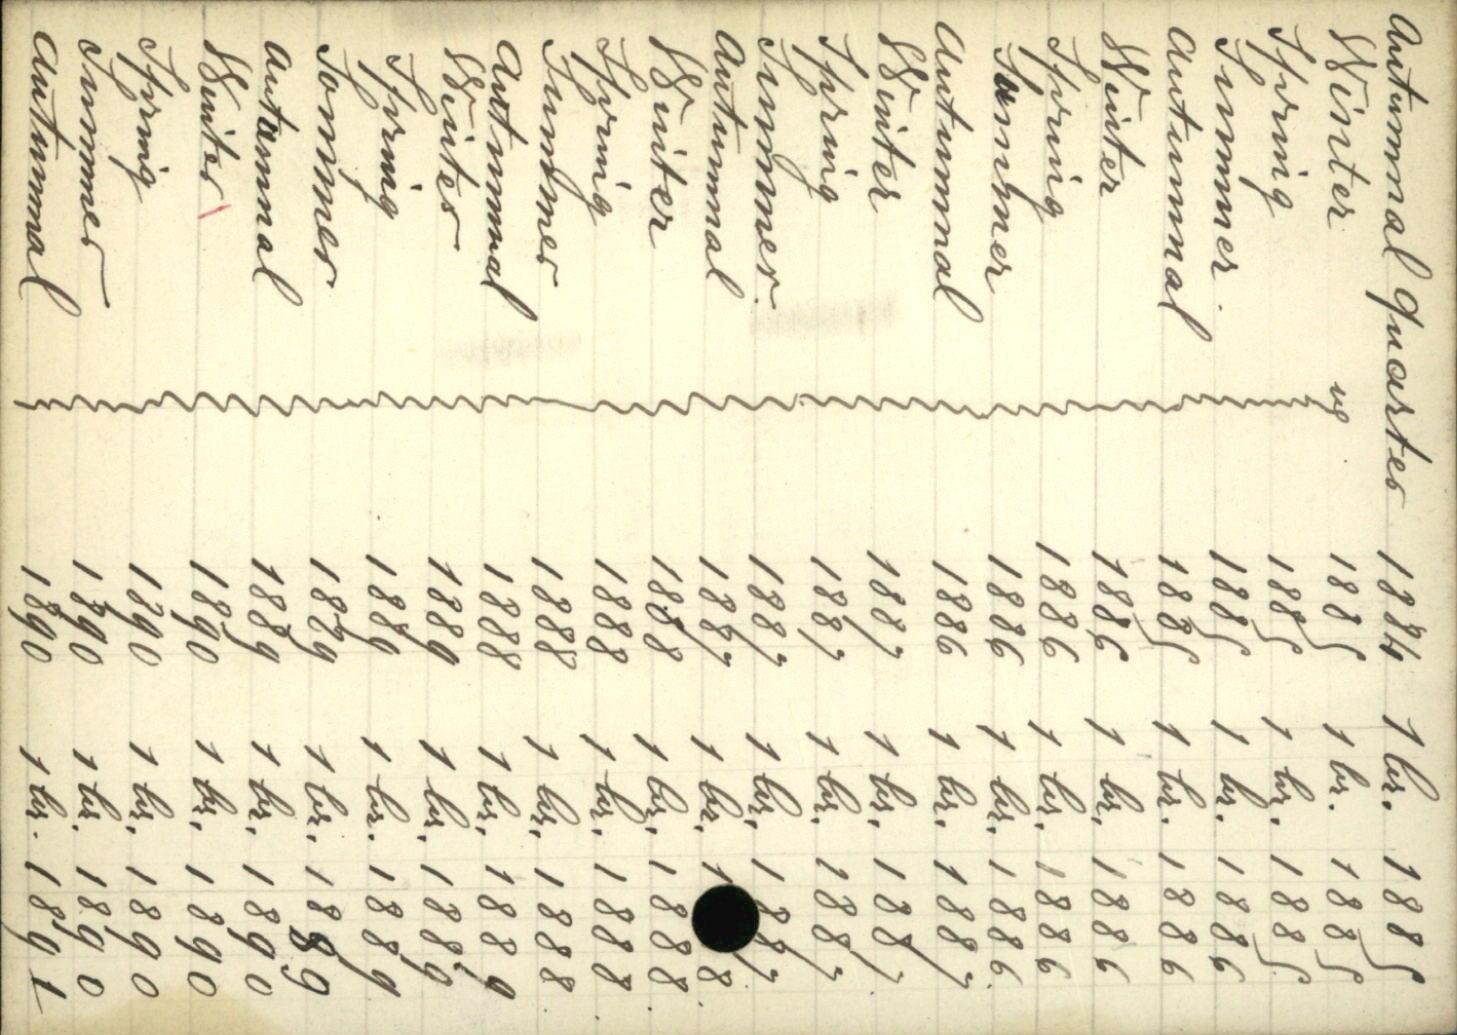 Autumnal Quarter 1884 1 br. 1885
Winter 1885 1 br. 1885
Spring 1885 1 br. 1885
Summer 1885 1 br. 1886
Autumnal 1885 1 br. 1886
Winter 1886 1 br. 1886
Spring 1886 1 br. 1886
Summer 1886 1 br. 1886.
Autumnal 1886 1 br. 1887
Winter 1887 1 br. 1887.
Spring 1887 1 br. 1887
Summer. 1887 1 br. 1887
Autumnal 1887 1 br. 1 8.
Winter 1888 1 br. 1888.
Spring 1888 1 br. 1888.
Summer 1888 1 br. 1888.
Autumnal 1888 1 br. 1889
Winter 1889 1 br. 1889
Spring 1889 1 br. 1889
Sommer 1889 1 br. 1889
Autumnal 1889 1 br. 1890
Winter 1890 1 br. 1890
Spring 1890 1 br. 1890
Summer 1890 1 br. 1890
Autumnal 1890 1 br. 1891